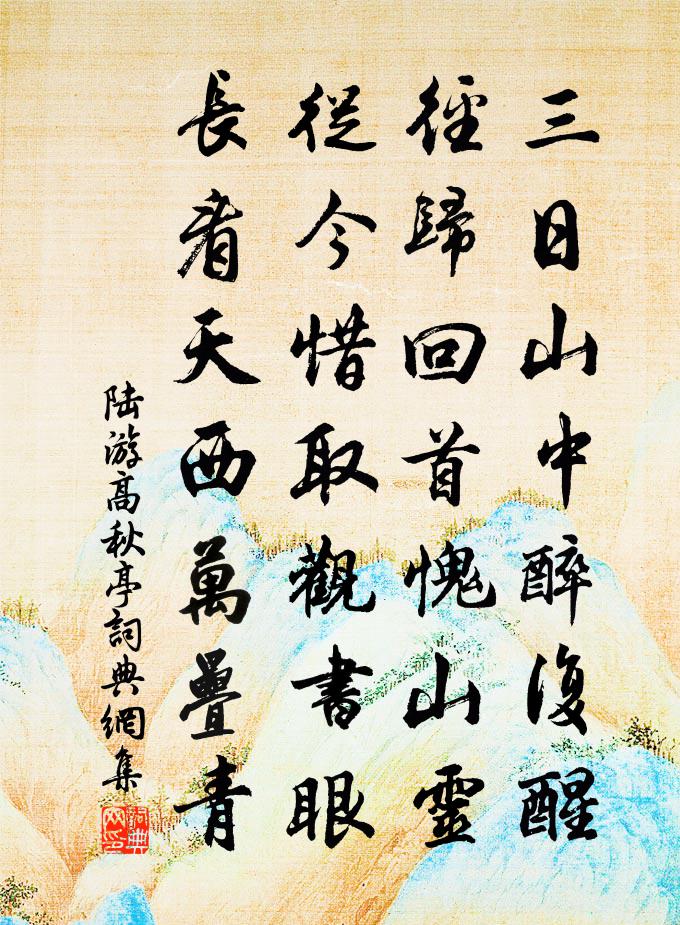 三日山中醉復醒
徑歸回首愧山靈
從今惜取觀書眼
長看天西萬疊青
陆游高秋亭詞典網集